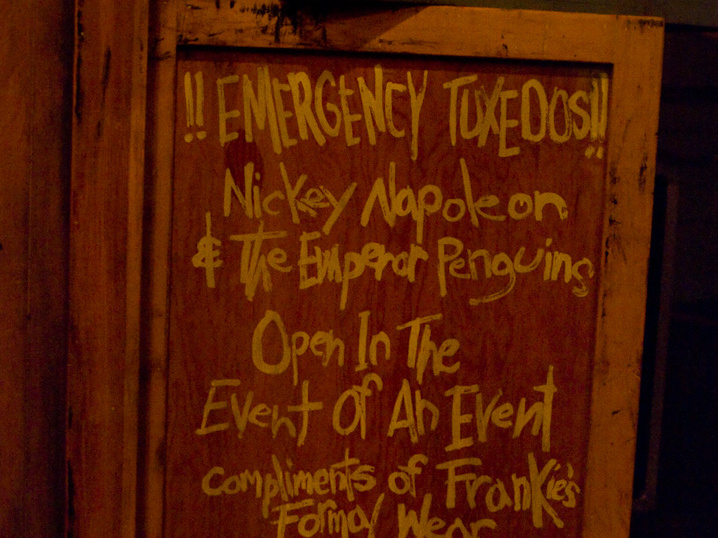 !! EMERGENCY TUXEDOS!!
Nickey Napoleon
& The Emperor Penguins
Open In The
Event Of An Event
Compliments of Frankie's
Formal Wear